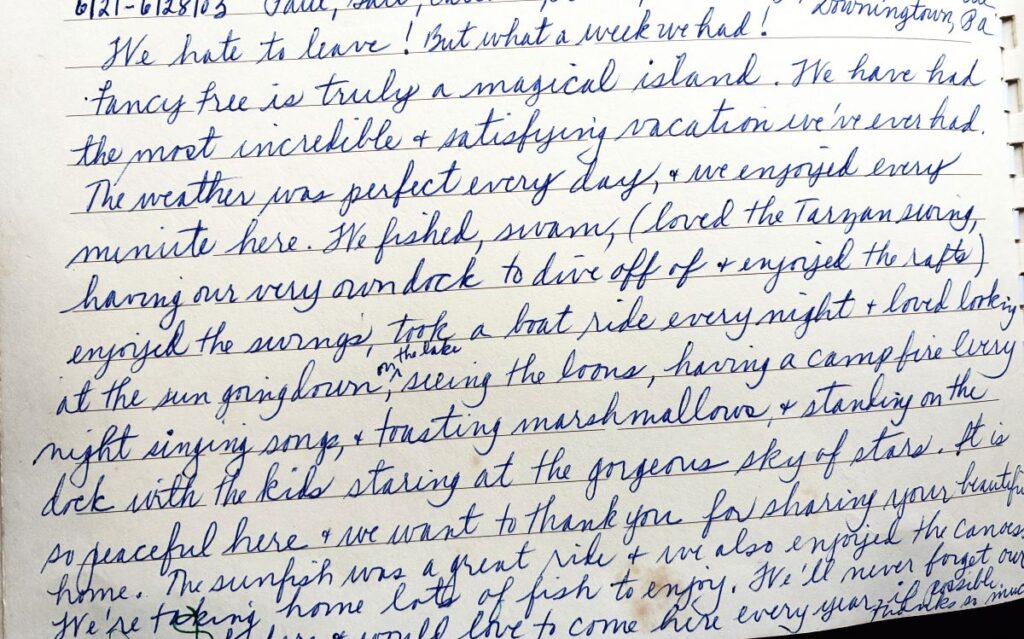 6/21-6/28/03
Downingtown, Pa
We hate to leave! But what a week we had!
Fancy Free is truly a magical island. We have had
the most incredible & satisfying vacation we've ever had.
The weather was perfect every day, & we enjoyed every
minute here. We fished, swam, (loved the Tarzan swing,
having our very own dock to dive off of & enjoyed the rafts)
enjoyed the swings, took a boat ride every night & loved looking
at the sun going down on the lake, seeing the loons, having a campfire every
night singing songs, & toasting marshmallows, & standing on the
dock with the kids staring at the gorgeous sky of stars. It is
so peaceful here & we want to thank you for sharing your beautiful
home. The sunfish was a great ride & we also enjoyed the canoes.
We're taking home lots of fish to enjoy. We'll never forget our
& would love to come here every year if possible.
Thanks so much